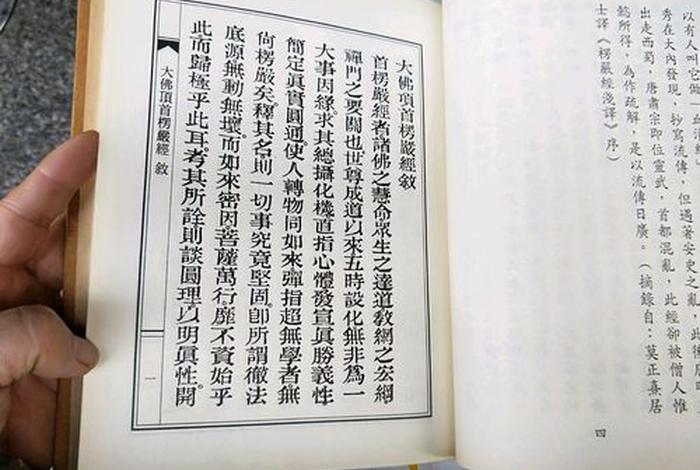 以有人叫它做
秀在大內發現，抄寫流傳，但遇著安史之亂
出走西蜀，唐肅宗即位靈武，首都混亂，此經卻被僧人惟
懿所得，為作疏解，是以流傳日廣。（摘錄自：莫正熹居
士譯《楞嚴經淺譯》序）
四
大佛頂首楞嚴經敘
首楞嚴經者諸佛之慧命眾生之達道教網之宏綱
禪門之要關也世尊成道以來五時設化無非為一
大事因緣。求其總攝化機直指心體發宣眞勝義性
簡定眞實圓通。使人轉物同如來彈指超無學者無
尚楞嚴矣。釋其名則一切事究竟堅固。卽所謂徹法
底源無動無壞。而如來密因菩薩萬行。靡不資始乎
此而歸極乎此耳。考其所詮則談圓理以明眞性。開
大佛頂首楞嚴經 敘
一